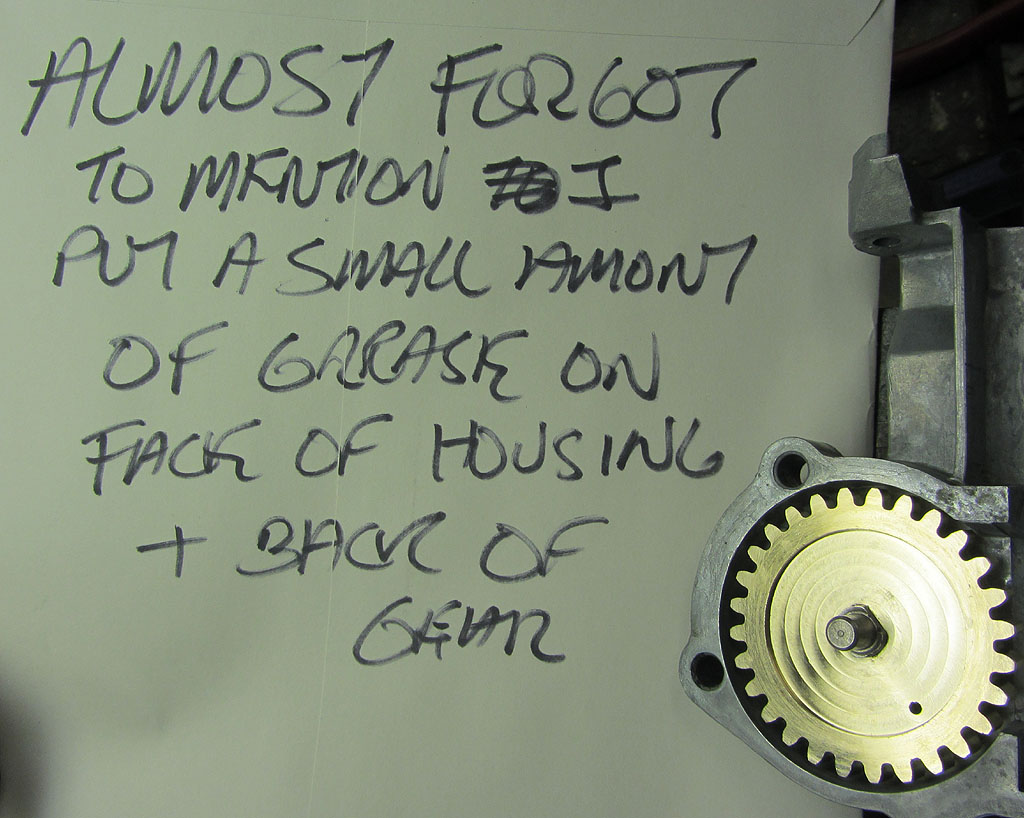 ALMOST FORGOT
TO MENTION I
PUT A SMALL AMONT
OF GREASE ON
FACE OF HOUSING
+ BACK OF
GEAR